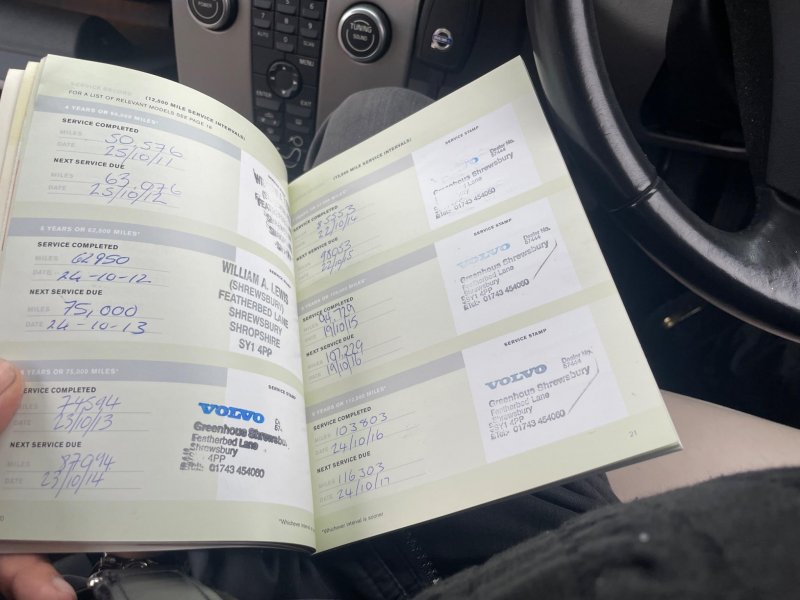 POWER
TUNING
SOUND
MENU
ENTER
EXIT
SERVICE RECORD (12,500 MILE SERVICE INTERVALS)
FOR A LIST OF RELEVANT MODELS SEE PAGE 16
SERVICE COMPLETED
MILES 50,576
DATE 25/10/11
NEXT SERVICE DUE
MILES 63,076
DATE 25/10/12
SERVICE STAMP
5 YEARS OR 62,500 MILES*
SERVICE COMPLETED
MILES 62950
DATE 24-10-12
NEXT SERVICE DUE
MILES 75,000
DATE 24-10-13
WILLIAM A. LEWIS
(SHREWSBURY)
FEATHERBED LANE
SHREWSBURY
SHROPSHIRE
SY1 4PP
YEARS OR 75,000 MILES*
SERVICE COMPLETED
MILES 74594
DATE 23/10/13
NEXT SERVICE DUE
MILES 87094
DATE 23/10/14
SERVICE STAMP
VOLVO
Greenhous Shrewsbu
Featherbed Lane
Shrewsbury
4PP
01743 454060
*Whichever interval is
(12,500 MILE SERVICE INTERVALS)
SERVICE COMPLETED
MILES 85553
DATE 22/10/14
NEXT SERVICE DUE
MILES 98053
22/9/15
SERVICE STAMP
VOLVO
Dealer No.
Greenhous Shrewsbury
Lane
Shrewsbury
SY1 4PP
01743 454060
SERVICE COMPLETED
94,729
19/10/15
NEXT SERVICE DUE
107,229
19/10/16
SERVICE STAMP
VOLVO
Dealer No.
Greenhous Shrewsbury
Featherbed Lane
Shrewsbury
SY1 4PP
01743 454060
SERVICE COMPLETED
MILES 103803
DATE 24/10/16
NEXT SERVICE DUE
MILES 116,303
DATE 24/10/17
SERVICE STAMP
VOLVO
Dealer No.
Greenhous Shrewsbury
Featherbed Lane
Shrewsbury
SY1 4PP
01743 454060
*Whichever interval is sooner
21